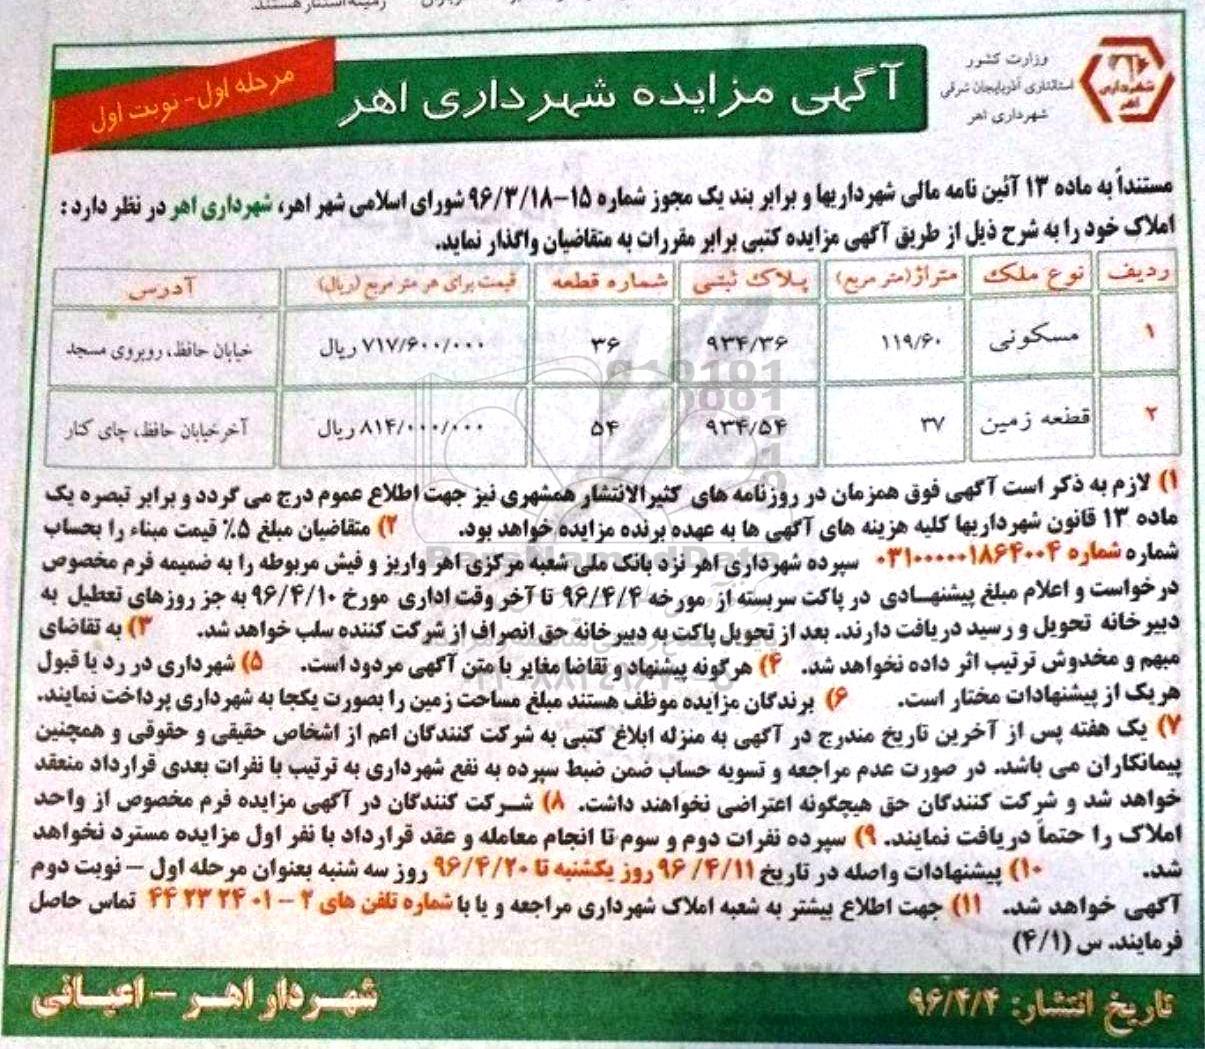 زمینه استنار هستند.
وزارت کشور
استانداری آذربایجان شرقی
شهرداری اهر
شهرداری
اهر
آگهی مزایده شهرداری اهر
مرحله اول - نوبت اول
مستنداً به ماده ۱۳ آئین نامه مالی شهرداریها و برابر بند یک مجوز شماره ۱۵-۹۶/۳/۱۸ شورای اسلامی شهر اهر، شهرداری اهر در نظر دارد :
املاک خود را به شرح ذیل از طریق آگهی مزایده کتبی برابر مقررات به متقاضیان واگذار نماید.
ردیف نوع ملک متراژ(متر مربع) پلاک ثبتی شماره قطعه قیمت برای هر متر مربع (ریال) آدرس
۱ مسکونی ۱۱۹/۶۰ ۹۳۴/۳۶ ۳۶ ۷۱۷/۶۰۰/۰۰۰ ریال خیابان حافظ، روبروی مسجد
۲ قطعه زمین ۳۷ ۹۳۴/۵۴ ۵۴ ۸۱۴/۰۰۰/۰۰۰ ریال آخر خیابان حافظ، چای کنار
۱) لازم به ذکر است آگهی فوق همزمان در روزنامه های کثیرالانتشار همشهری نیز جهت اطلاع عموم درج می گردد و برابر تبصره یک
ماده ۱۳ قانون شهرداریها کلیه هزینه های آگهی ها به عهده برنده مزایده خواهد بود. ۲) متقاضیان مبلغ ۵٪ قیمت مبناء را بحساب
شماره شماره ۰۳۱۰۰۰۰۰۱۸۶۴۰۰۴ سپرده شهرداری اهر نزد بانک ملی شعبه مرکزی اهر واریز و فیش مربوطه را به ضمیمه فرم مخصوص
درخواست و اعلام مبلغ پیشنهادی در پاکت سربسته از مورخه ۹۶/۴/۴ تا آخر وقت اداری مورخ ۹۶/۴/۱۰ به جز روزهای تعطیل به
دبیرخانه تحویل و رسید دریافت دارند. بعد از تحویل پاکت به دبیرخانه حق انصراف از شرکت کننده سلب خواهد شد. ۳) به تقاضای
مبهم و مخدوش ترتیب اثر داده نخواهد شد. ۴) هرگونه پیشنهاد و تقاضا مغایر با متن آگهی مردود است. ۵) شهرداری در رد یا قبول
هریک از پیشنهادات مختار است. ۶) برندگان مزایده موظف هستند مبلغ مساحت زمین را بصورت یکجا به شهرداری پرداخت نمایند.
۷) یک هفته پس از آخرین تاریخ مندرج در آگهی به منزله ابلاغ کتبی به شرکت کنندگان اعم از اشخاص حقیقی و حقوقی و همچنین
پیمانکاران می باشد. در صورت عدم مراجعه و تسویه حساب ضمن ضبط سپرده به نفع شهرداری به ترتیب با نفرات بعدی قرارداد منعقد
خواهد شد و شرکت کنندگان حق هیچگونه اعتراضی نخواهند داشت. ۸) شرکت کنندگان در آگهی مزایده فرم مخصوص از واحد
املاک را حتماً دریافت نمایند. ۹) سپرده نفرات دوم و سوم تا انجام معامله و عقد قرارداد با نفر اول مزایده مسترد نخواهد
شد. ۱۰) پیشنهادات واصله در تاریخ ۹۶/۴/۱۱ روز یکشنبه تا ۹۶/۴/۲۰ روز سه شنبه بعنوان مرحله اول – نوبت دوم
آگهی خواهد شد. ۱۱) جهت اطلاع بیشتر به شعبه املاک شهرداری مراجعه و یا با شماره تلفن های ۲ - ۰۱ ۲۴ ۲۳ ۴۴ تماس حاصل
فرمایند. س (۴/۱)
تاریخ انتشار: ۹۶/۴/۴
شهردار اهر – اعیانی
ParsNamadData